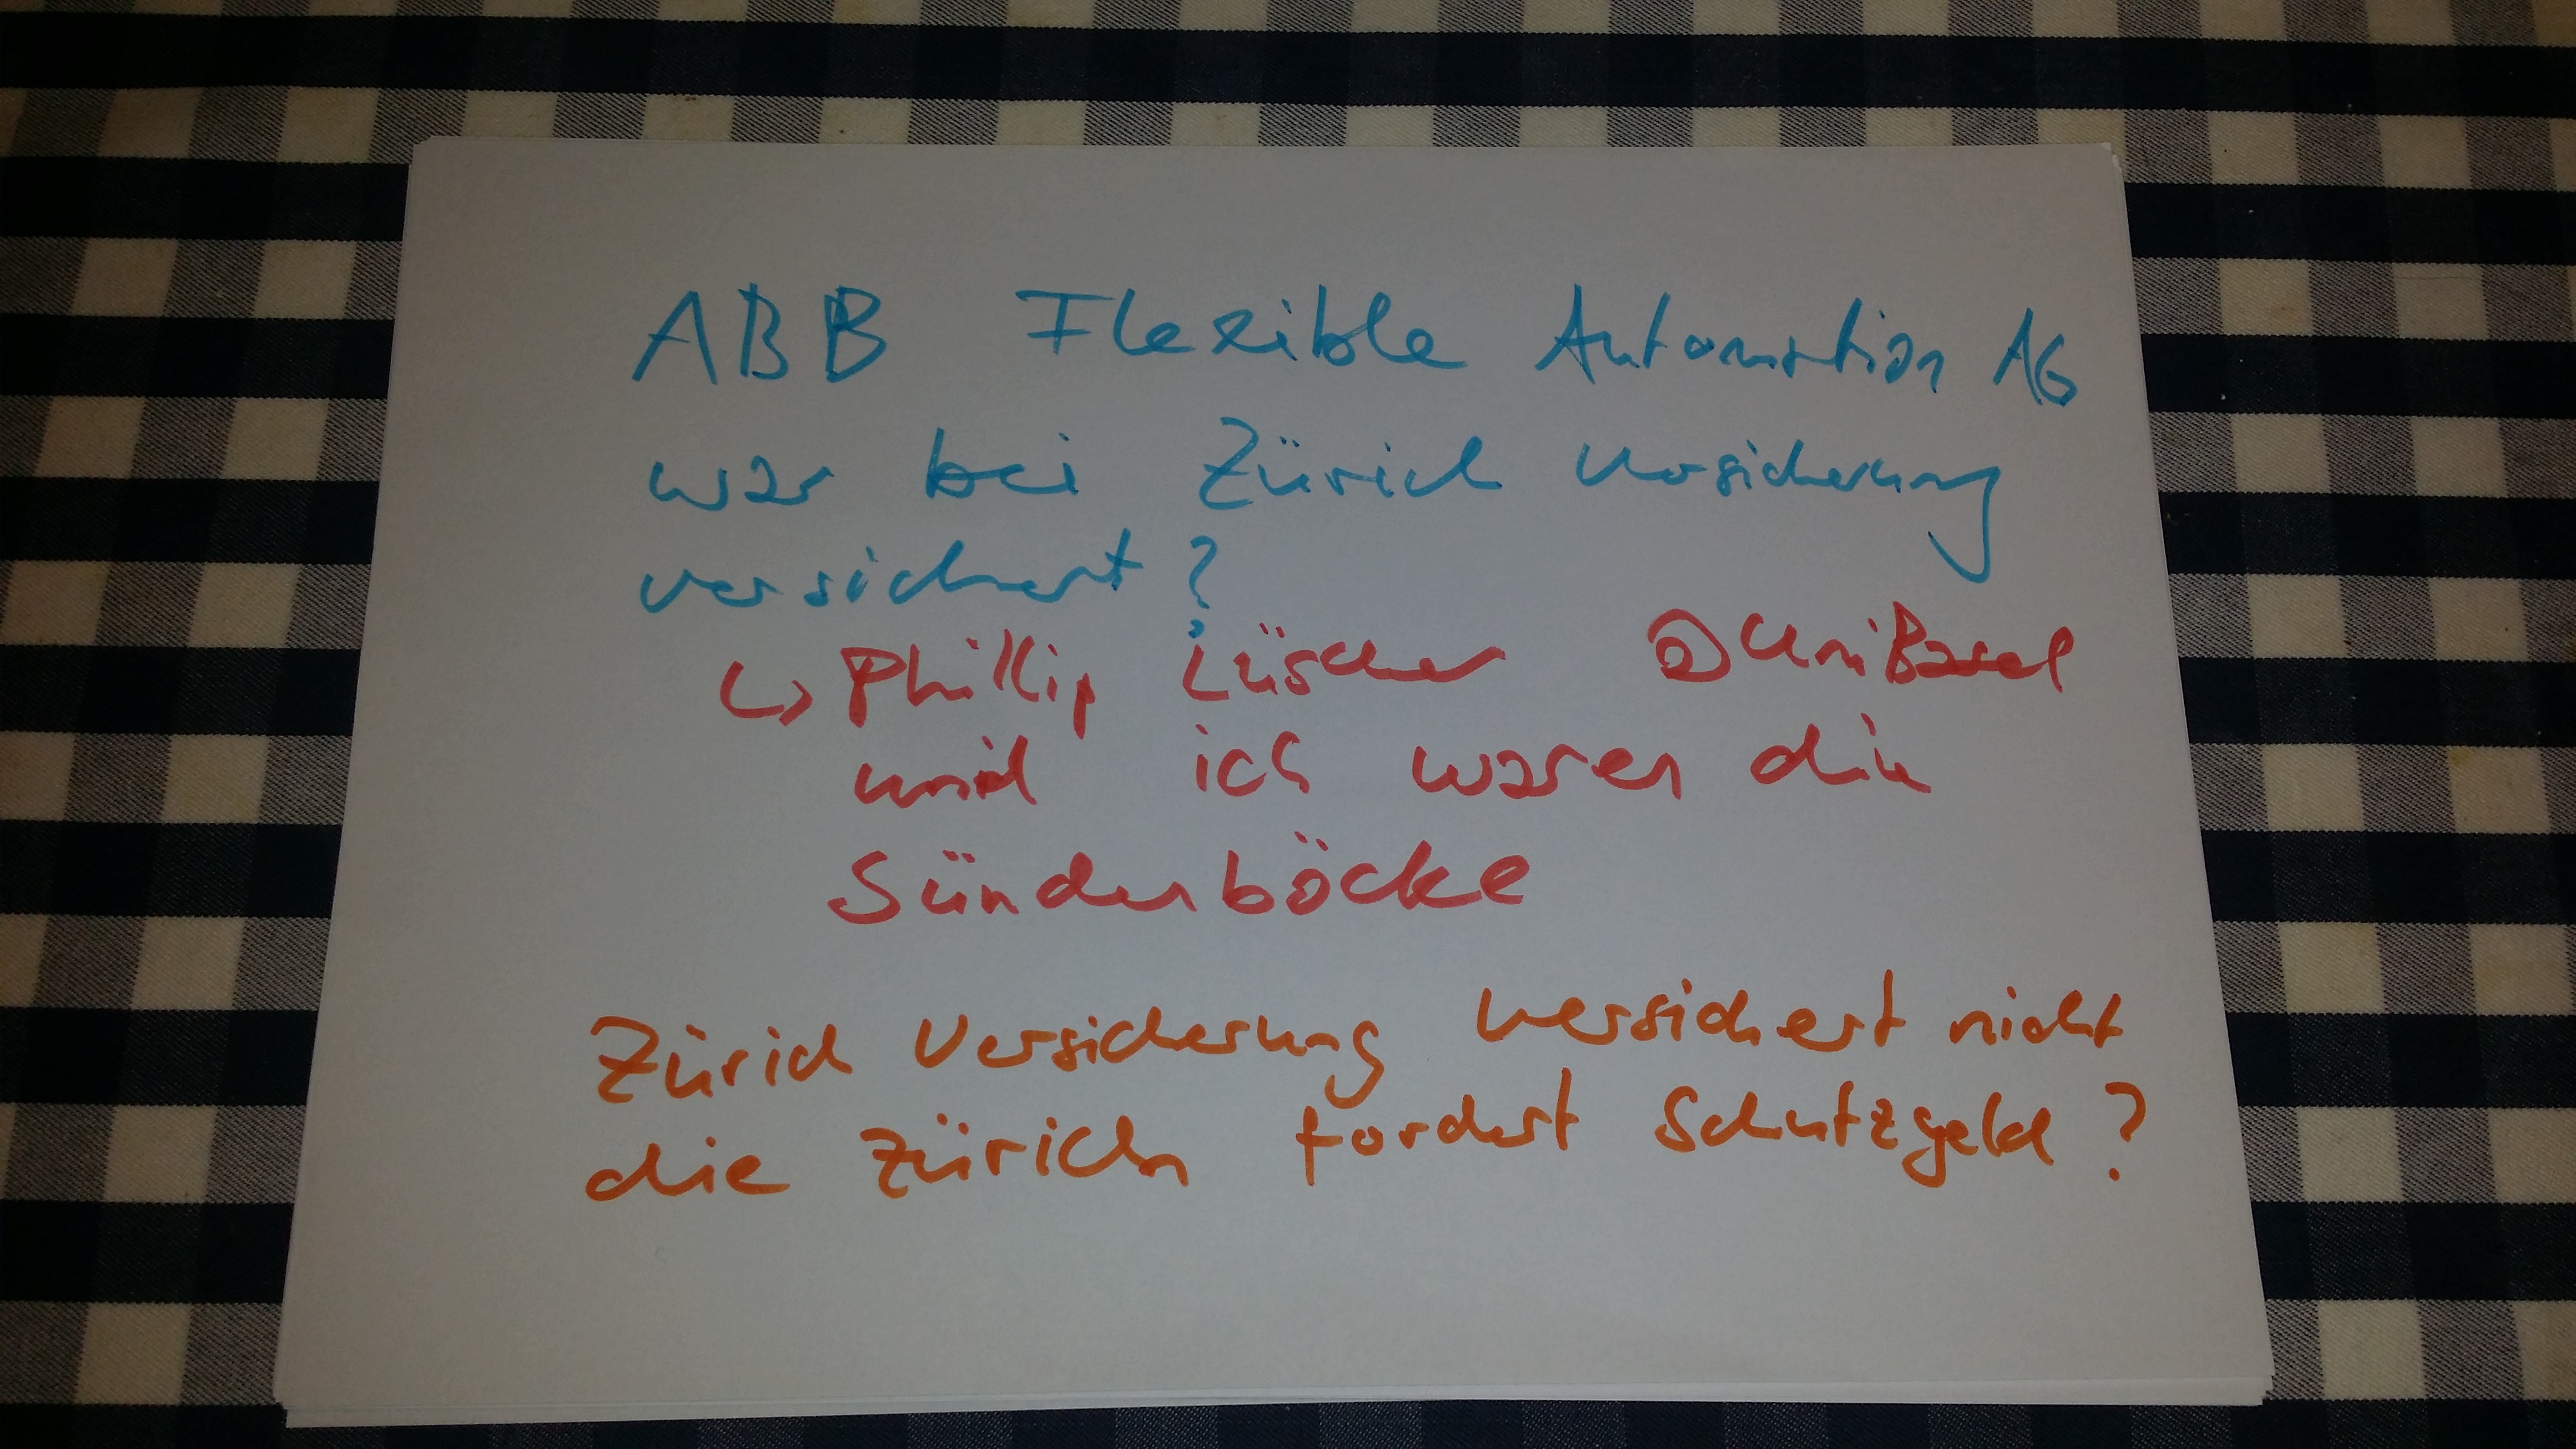 ABB Flexible Automation AG
war bei Zürich Versicherung
versichert?
↳ Phillip Lüscher @UniBasel
und ich waren die
Sünderböcke
Zürich Versicherung versichert nicht
die Zürich fordert Schutzgeld?